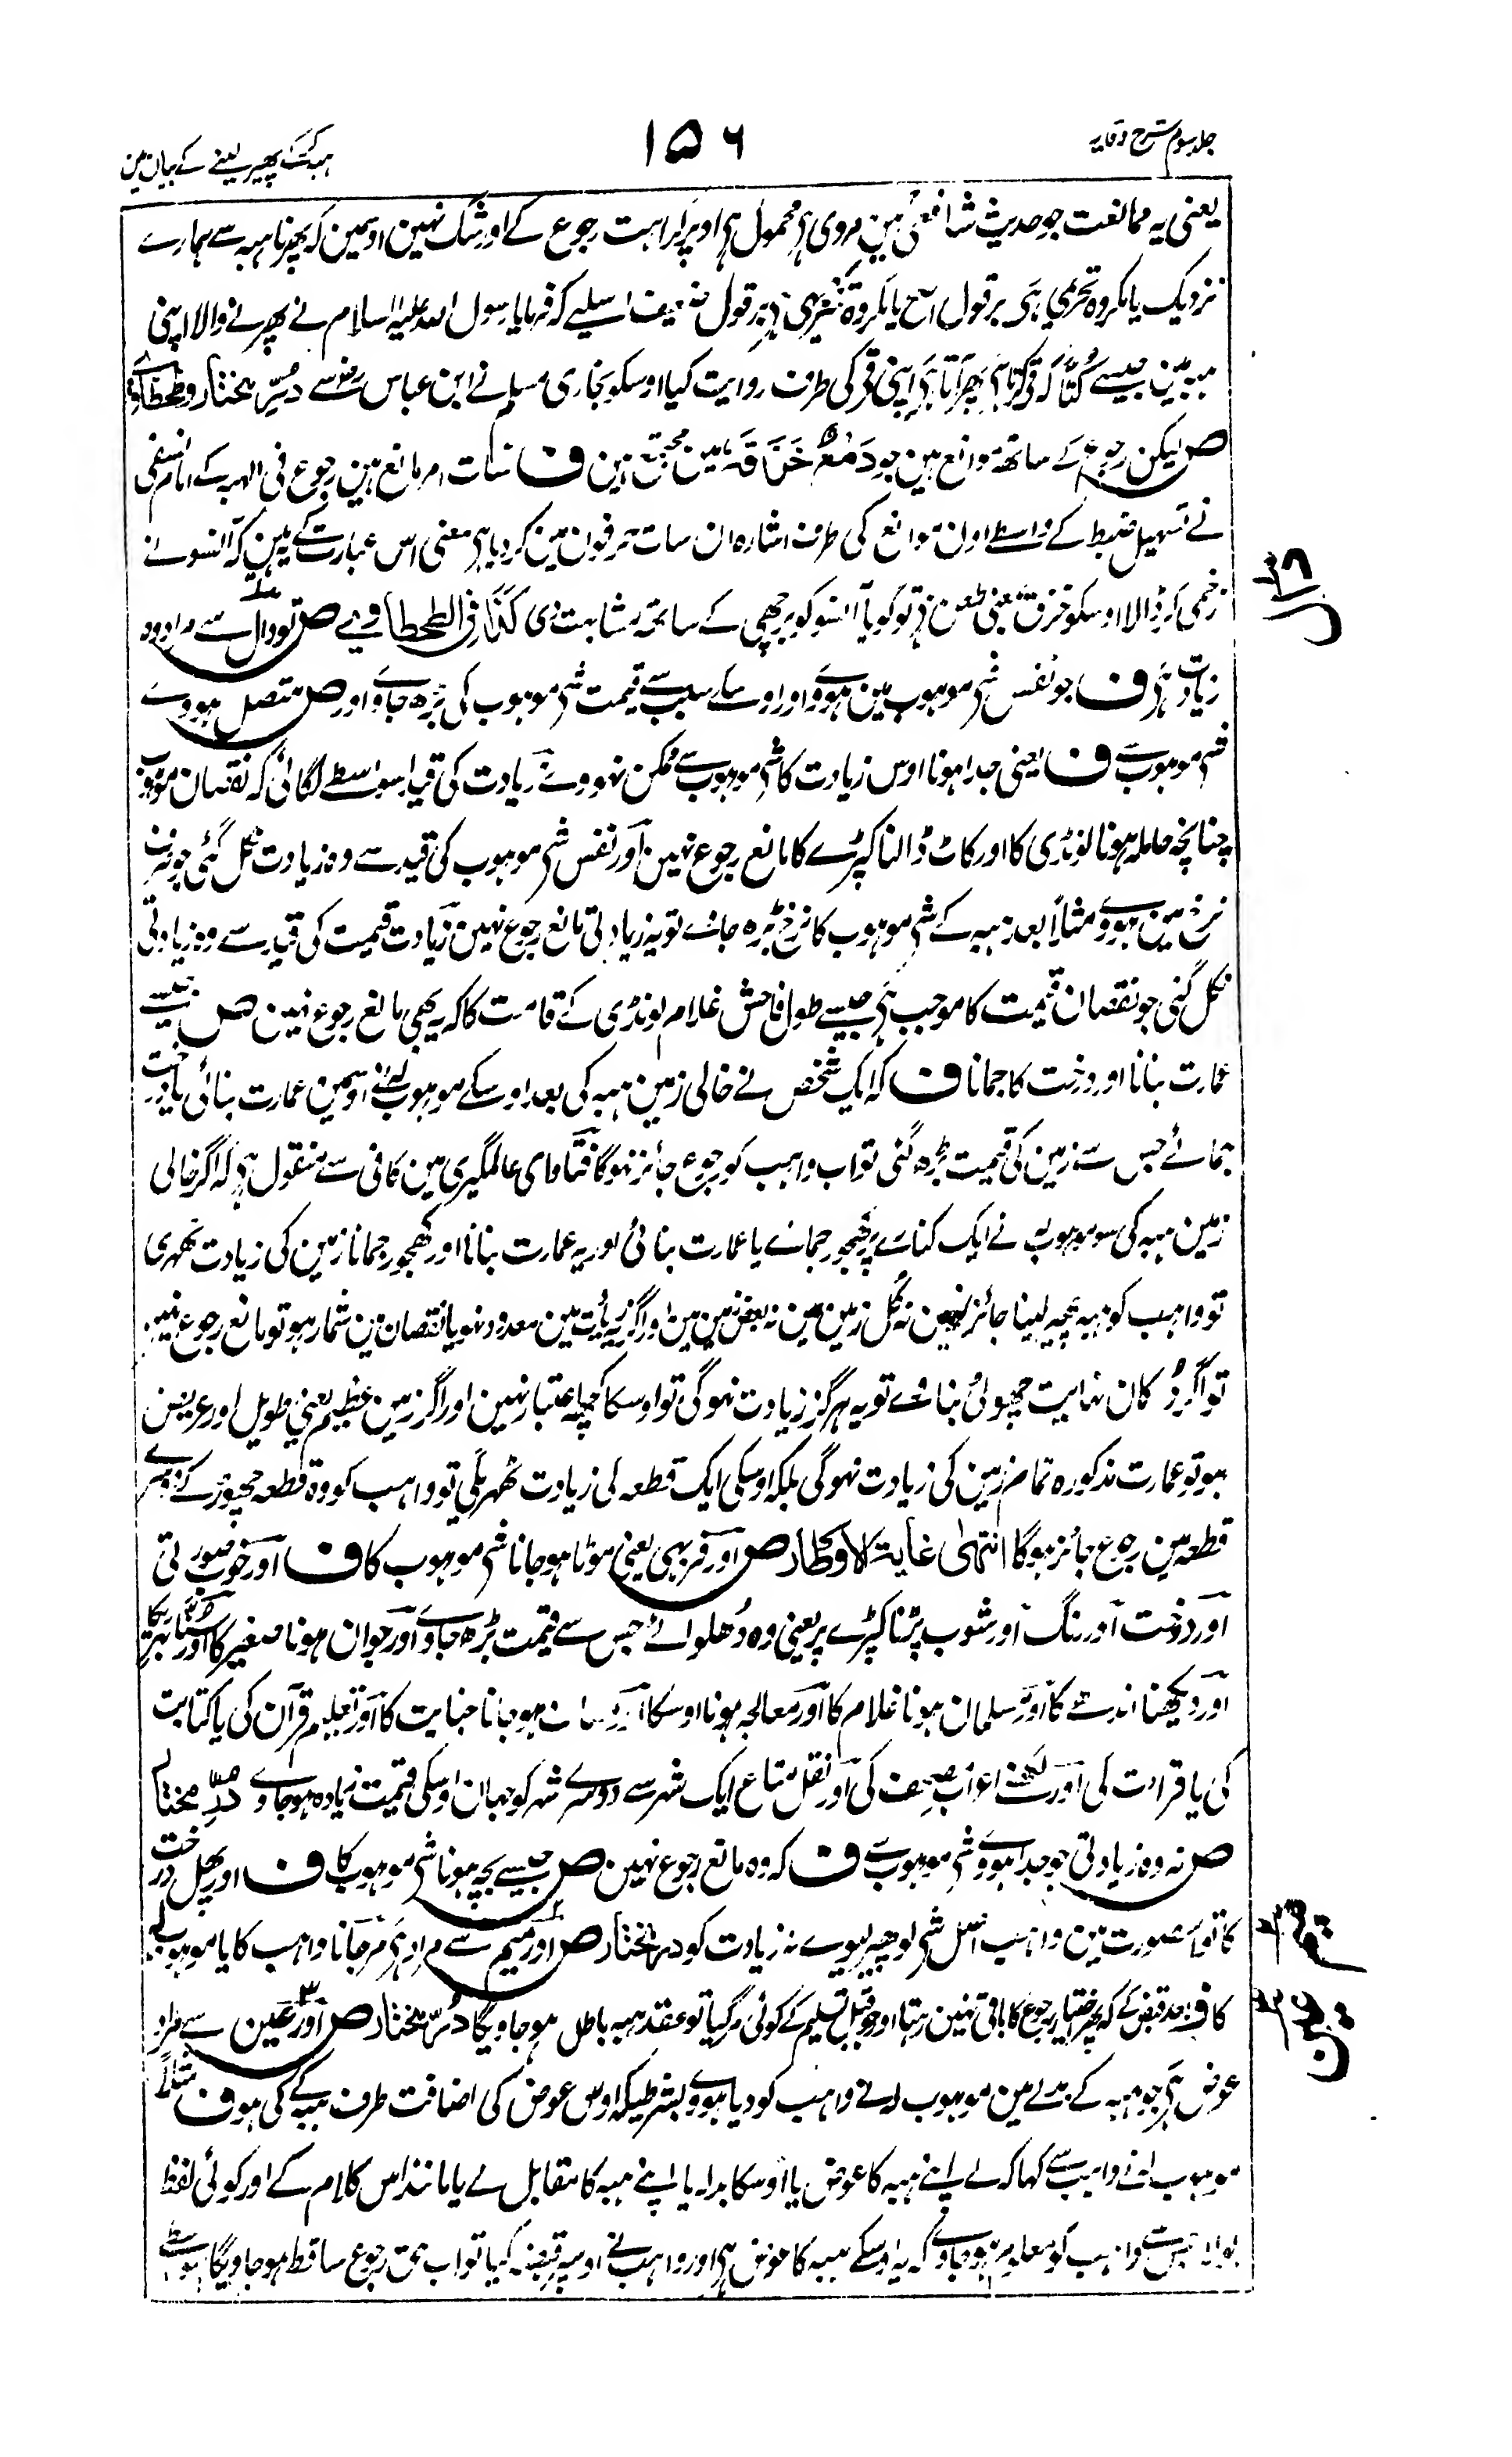 جلد سوم شرح وقایہ
۱۵۶
ہبہ کے پھیر لینے کے بیان مین
یعنی یہ ممانعت جو حدیث شافعی مین مروی ہی محمول ہی اوپر کراہت رجوع کے اور شک نہین اوسمین کہ پھرنا ہبہ سے ہمارے
نزدیک یا مکروہ تحریمی ہی بر قول اصح یا مکروہ تنزیہی ہی بر قول ضعیف اسلیے کہ فرمایا رسول اللہ علیہ السلام نے پھرنے والا اپنی
ہبہ مین جیسے کتا کہ قی کرتا ہی پھر آتا ہی اپنی قی کی طرف روایت کیا اوسکو بخاری مسلم نے ابن عباس رض سے در مختار و طحطاوی
ص لیکن رجوع کے ساتھ موانع ہین جو دمع خزقہ مین مجتمع ہین ف سات امر مانع ہین رجوع فی الہبہ کے امام نسفی
نے تسہیل ضبط کے واسطے اون موانع کی طرف اشارہ ان سات حرفون مین کر دیا ہی معنی اس عبارت کے یہ ہین کہ آنسو نے
زخمی کر ڈالا اوسکو خزق بمعنی طعن ہی تو گویا آنسو کو برچھی کے ساتھ مشابہت دی کذا فی الطحطاوی ص تو دال سے مراد وہ
زیادت ہی ف جو نفس شی موہوب مین ہووے اور اوسکے سبب سے قیمت شی موہوب کی بڑھ جاوے اور ص متصل ہووے
شی موہوب سے ف یعنی جدا ہونا اوس زیادت کا شی موہوب سے ممکن نہووے زیادت کی قید اسواسطے لگائی کہ نقصان موہوب
چنانچہ حاملہ ہونا لونڈی کا اور کاٹ ڈالنا کپڑے کا مانع رجوع نہین اور نفس شی موہوب کی قید سے وہ زیادت نکل گئی جو صرف
نرخ مین ہووے مثلاً بعد ہبہ کے شی موہوب کا نرخ بڑہ جاے تو یہ زیادتی مانع رجوع نہین زیادت قیمت کی قید سے وہ زیادتی
نکل گئی جو نقصان قیمت کا موجب ہی جیسے طول فاحش غلام لونڈی کے قامت کا کہ یہ بھی مانع رجوع نہین ص جیسے
عمارت بنانا اور درخت کا جمانا ف کہ ایک شخص نے خالی زمین ہبہ کی بعد اوسکے موہوب لہ نے اوسمین عمارت بنائی یا درخت
جمائے جس سے زمین کی قیمت بڑھ گئی تو اب واہب کو رجوع جائز نہوگا فتاوای عالمگیری مین کافی سے منقول ہی کہ اگر خالی
زمین ہبہ کی سو موہوب لہ نے ایک کنارے پر کھجور جمائے یا عمارت بنائی اور یہ عمارت بنانا اور کھجور جمانا زمین کی زیادت ٹھہری
تو واہب کو ہبہ پھیر لینا جائز نہین نہ کل زمین مین نہ بعض زمین مین اور اگر یہ زیادت مین معدود نہو یا نقصان مین شمار ہو تو مانع رجوع نہین
تو اگر دکان نہایت چھوٹی بنائے تو یہ ہرگز زیادت نہوگی تو اوسکا کچھ اعتبار نہین اور اگر زمین عظیم یعنی طویل اور عریض
ہو تو عمارت مذکورہ تمام زمین کی زیادت نہوگی بلکہ اوسکی ایک قطعہ کی زیادت ٹھہریگی تو واہب کو وہ قطعہ چھوڑ کے دوسرے
قطعہ مین رجوع جائز ہوگا انتہی غایۃ الاوطار ص اور فربہی یعنی موٹا ہو جانا شی موہوب کا ف اور خوبصورتی
اور درخت اور رنگ اور شوب پڑنا کپڑے پر یعنی وہ دُھلوائے جس سے قیمت بڑھ جاوے اور جوان ہونا صغیر کا اور سننا بہرے کا
اور دیکھنا اندھے کا اور مسلمان ہونا غلام کا اور معالجہ ہونا اوسکا اور معاف ہو جانا جنایت کا اور تعلیم قرآن کی یا کتابت
کی یا قرارت کی اور لکھنے اعراب مصحف کی اور نقل متاع ایک شہر سے دوسرے شہر کو جہان اوسکی قیمت زیادہ ہوجاوے در مختار
ص نہ وہ زیادتی جو جدا ہووے شی موہوب سے ف کہ وہ مانع رجوع نہین ص جیسے بچہ ہونا شی موہوب کا ف اور پھل درخت
کا تو اس صورت مین واہب اصل شی کو پھیر لیوے نہ زیادت کو در المختار ص اور میم سے مراد ہی مر جانا واہب کا یا موہوب لہ
کا ف بعد قبض کے کہ پھر اختیار رجوع کا باقی نہین رہتا اور جو قبل تسلیم کے کوئی مر گیا تو عقد ہبہ باطل ہو جاویگا در مختار ص اور عین سے مراد
عوض ہی جو ہبہ کے بدلے مین موہوب لہ نے واہب کو دیا ہووے بشرطیکہ اوس عوض کی اضافت طرف ہبہ کے کی ہو ف مثلاً
موہوب لہ نے واہب سے کہا کہ لے اپنے ہبہ کا عوض یا اوسکا بدلہ یا اپنے ہبہ کا مقابل لے یا مانند اس کلام کے اور کوئی لفظ
بولا جس سے واہب کو معلوم ہو جاوے کہ یہ اوسکے ہبہ کا عوض ہی اور واہب نے اوسپر قبضہ کیا تو اب حق رجوع ساقط ہو جاویگا